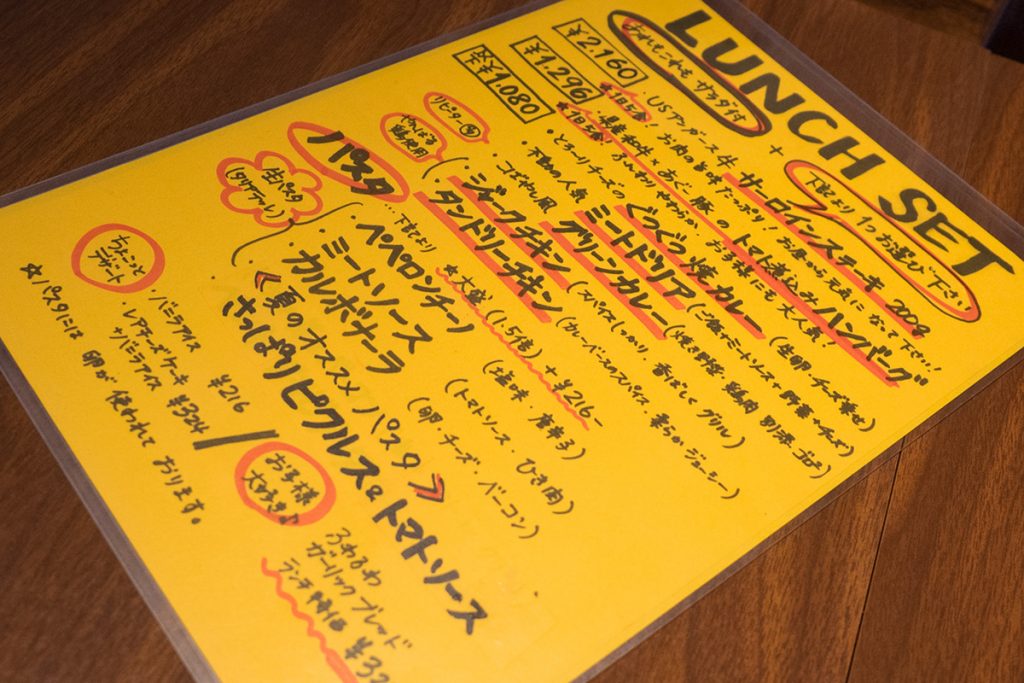 LUNCH SET
あれもこれもサラダ付 + 下記より1つお選び下さい
¥2.160
★1日5食! USアンガス牛 サーロインステーキ 200g
お肉の旨味たっぷり! お昼から元気になって下さい!!
¥1.296
★1日5食! 県産和牛×あぐー豚の トマト煮込みハンバーグ
ふんわりやわらか、お子様にも大人気!
(生卵・チーズ乗せ)
各¥1.080
・とろーりチーズの ぐつぐつ焼カレー
ミートドリア (ご飯にミートソース+野菜+チーズ)
・不動の人気 グリーンカレー (焼き野菜・鶏肉
リピーター多
やんばる鶏使用
ジャークチキン (スパイスしっかり、香ばしくグリル)
タンドリーチキン (カレーベースのスパイス、柔らかジューシー)
パスタ …下記より ★大盛(1.5倍)+¥216-
生パスタ
(タリアテーレ)
・ペペロンチーノ (塩味・唐辛子)
・ミートソース (トマトソース・ひき肉)
・カルボナーラ (卵・チーズ・ベーコン)
《夏のオススメ パスタ》
さっぱりピクルス&トマトソース
ちょこっとデザート
・バニラアイス ¥216
・レアチーズケーキ+バニラアイス ¥324
お子様大好き♪
ふわふわ
ガーリックブレード
ランチ特価 ¥32
☆パスタには 卵が 使われて おります。